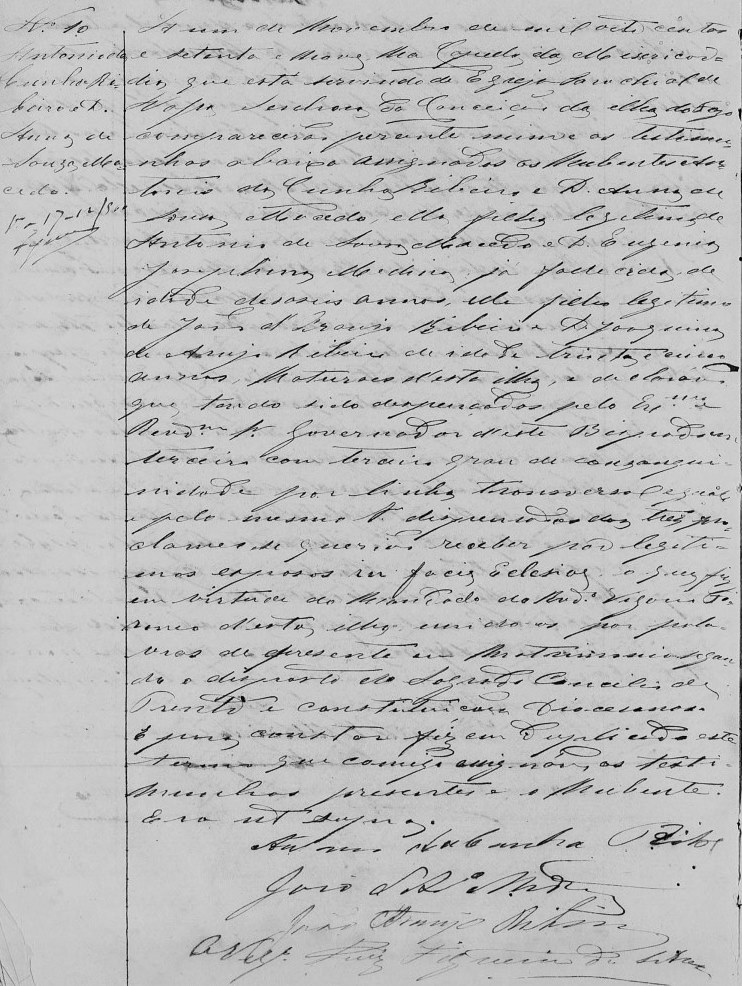 Nº 10
Antonio da
Cunha Ri-
beiro e D.
Anna de
Souza Ma-
cedo.
A um de Novembro de mil oito centos
e setenta e nove na Capella da Misericor-
dia que está servindo de Egreja Parochial de
Nossa Senhora da Conceição da ilha do Fogo
comparecerão perante mim e as testimu-
nhas abaixo assignadas os Nubentes An-
tonio da Cunha Ribeiro e D. Anna de
Souza Macedo, ella filha legitima de
Antonio de Souza Macedo e D. Eugenia
Josephina Medina já fallecida, de
idade desaseis annos, elle filho legitimo
de João d'Araujo Ribeiro e D. Joaquina
de Araujo Ribeiro de idade trinta e cinco
annos, Naturaes d'esta ilha, e declararão
que tendo sido despensados pelo Exmo e
Revdmo Sr. Governador d'este Bispado em
terceiro com terceiro grau de consangui-
nidade por linha transversal egual
e pelo mesmo Sr. dispensados dos tres pro-
clames, se querião receber por legiti-
mos esposos in facie Eclesiae o que fiz
em virtude do Mandado do Revdo Vigario Fo-
raneo d'esta ilha unindo os por pala-
vras de presente em Matrimonio segun-
do o disposto do Sagrado Concilio de
Trento e constituição Diocesana
E para constar fiz em Duplicado este
termo que comigo assignarão, as testi-
munhas presentes e o Nubente.
Era ut supra.
Antonio da Cunha Ribro
João
João Araujo Ribeiro
O Vigr. Luiz